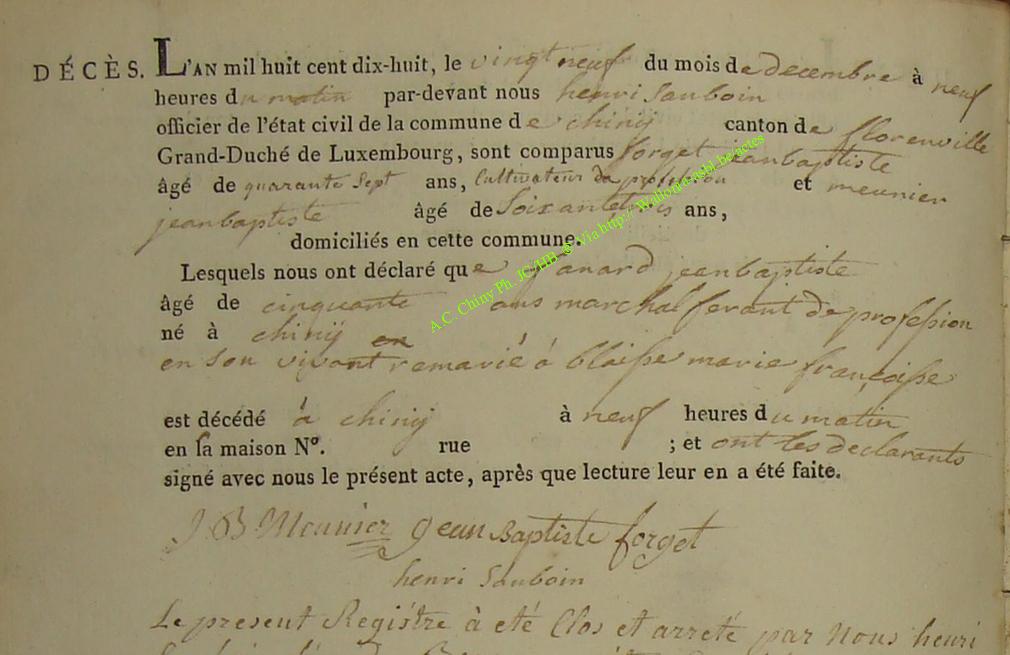 DÉCÈS. L'AN mil huit cent dix-huit, le vingt neuf du mois de decembre à neuf
heures du matin par-devant nous henri Sauboin
officier de l'état civil de la commune de chiny canton de florenville
Grand-Duché de Luxembourg, sont comparus forget jeanbaptiste
âgé de quarante Sept ans, Cultivateur de profession et meunier
jeanbaptiste âgé de Soixante trois ans,
domiciliés en cette commune.
Lesquels nous ont déclaré que jeanbaptiste
âgé de cinquante ans marchal ferant de profession
né à chiny en
en Son vivant remarié à blaisse marie françoisse
est décédé à chiny à neuf heures du matin
en sa maison N°. rue ; et ont les declarants
signé avec nous le présent acte, après que lecture leur en a été faite.
J B Meunier jean Baptiste forget
henri Sauboin
Le present Registre à eté Clos et arreté par Nous henri
A.C. Chiny Ph. JC/HB @ Via http:// Wallonia.asbl.be/actes